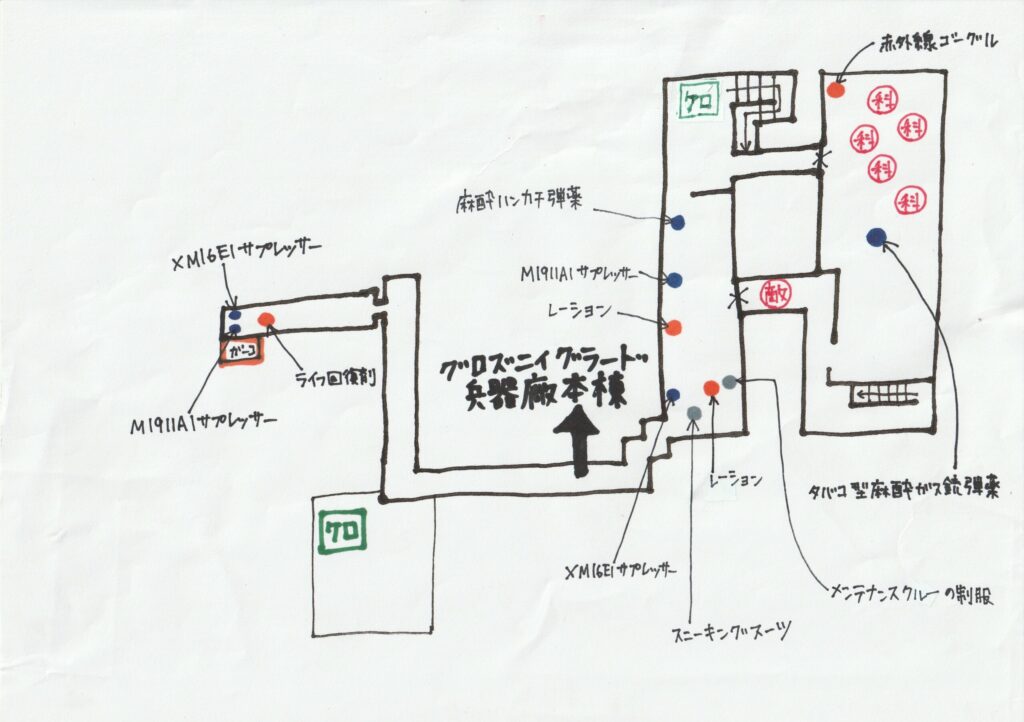 赤外線ゴーグル
ケロ
科
科
科
科
科
麻酔ハンカチ弾薬
XM16E1サプレッサー
M1911A1サプレッサー
敵
レーション
ガーコ
ライフ回復剤
グロズニィグラード
兵器廠本棟
M1911A1サプレッサー
レーション
タバコ型麻酔ガス銃弾薬
ケロ
XM16E1サプレッサー
メンテナンスクルーの制服
スニーキングスーツ